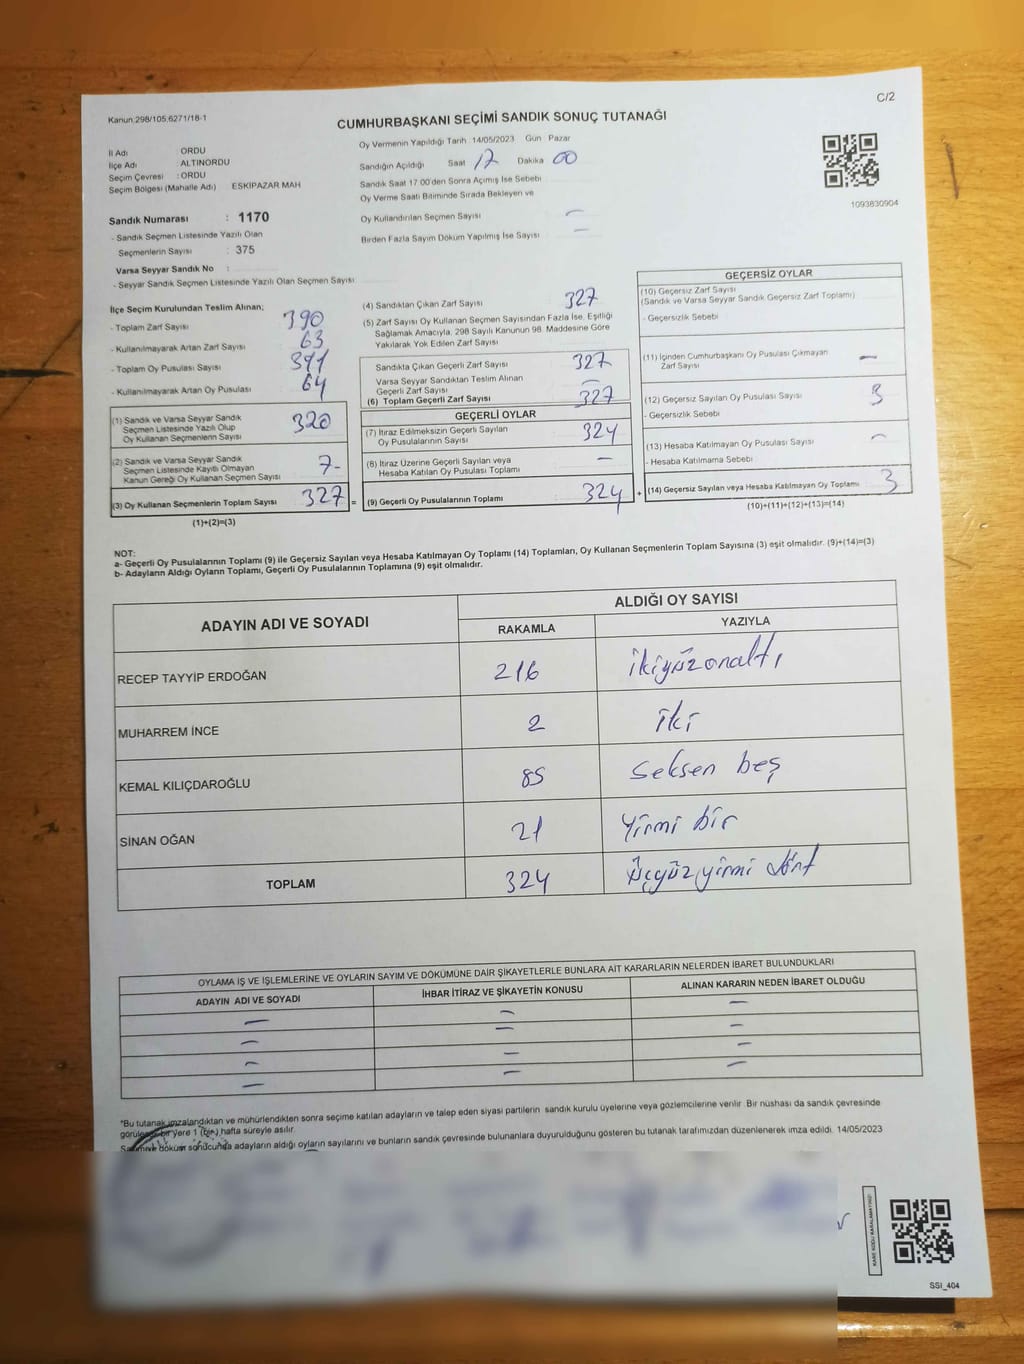 C/2
Kanun:298/105;6271/18-1
CUMHURBAŞKANI SEÇİMİ SANDIK SONUÇ TUTANAĞI
İl Adı : ORDU
İlçe Adı : ALTINORDU
Seçim Çevresi : ORDU
Seçim Bölgesi (Mahalle Adı) ESKİPAZAR MAH
Sandık Numarası : 1170
- Sandık Seçmen Listesinde Yazılı Olan
Seçmenlerin Sayısı : 375
Varsa Seyyar Sandık No :
- Seyyar Sandık Seçmen Listesinde Yazılı Olan Seçmen Sayısı
Oy Vermenin Yapıldığı Tarih 14/05/2023 Gün Pazar
Sandığın Açıldığı Saat 17 Dakika 00
Sandık Saat 17:00'den Sonra Açılmış İse Sebebi
Oy Verme Saati Bitiminde Sırada Bekleyen ve
Oy Kullandırılan Seçmen Sayısı –
Birden Fazla Sayım Döküm Yapılmış İse Sayısı –
1093830904
İlçe Seçim Kurulundan Teslim Alınan;
- Toplam Zarf Sayısı 390
- Kullanılmayarak Artan Zarf Sayısı 63
- Toplam Oy Pusulası Sayısı 391
- Kullanılmayarak Artan Oy Pusulası 64
(1) Sandık ve Varsa Seyyar Sandık
Seçmen Listesinde Yazılı Olup
Oy Kullanan Seçmenlerin Sayısı 320
(2) Sandık ve Varsa Seyyar Sandık
Seçmen Listesinde Kayıtlı Olmayan
Kanun Gereği Oy Kullanan Seçmen Sayısı 7-
(3) Oy Kullanan Seçmenlerin Toplam Sayısı 327 =
(1)+(2)=(3)
(4) Sandıktan Çıkan Zarf Sayısı 327
(5) Zarf Sayısı Oy Kullanan Seçmen Sayısından Fazla İse, Eşitliği
Sağlamak Amacıyla, 298 Sayılı Kanunun 98. Maddesine Göre
Yakılarak Yok Edilen Zarf Sayısı
Sandıkta Çıkan Geçerli Zarf Sayısı 327
Varsa Seyyar Sandıktan Teslim Alınan
Geçerli Zarf Sayısı –
(6) Toplam Geçerli Zarf Sayısı 327
GEÇERLİ OYLAR
(7) İtiraz Edilmeksizin Geçerli Sayılan
Oy Pusulalarının Sayısı 324
(8) İtiraz Üzerine Geçerli Sayılan veya
Hesaba Katılan Oy Pusulası Toplamı –
(9) Geçerli Oy Pusulalarının Toplamı 324 +
GEÇERSİZ OYLAR
(10) Geçersiz Zarf Sayısı
(Sandık ve Varsa Seyyar Sandık Geçersiz Zarf Toplamı)
- Geçersizlik Sebebi
(11) İçinden Cumhurbaşkanı Oy Pusulası Çıkmayan
Zarf Sayısı –
(12) Geçersiz Sayılan Oy Pusulası Sayısı 3
- Geçersizlik Sebebi
(13) Hesaba Katılmayan Oy Pusulası Sayısı –
- Hesaba Katılmama Sebebi
(14) Geçersiz Sayılan veya Hesaba Katılmayan Oy Toplamı 3
(10)+(11)+(12)+(13)=(14)
NOT:
a- Geçerli Oy Pusulalarının Toplamı (9) ile Geçersiz Sayılan veya Hesaba Katılmayan Oy Toplamı (14) Toplamları, Oy Kullanan Seçmenlerin Toplam Sayısına (3) eşit olmalıdır. (9)+(14)=(3)
b- Adayların Aldığı Oyların Toplamı, Geçerli Oy Pusulalarının Toplamına (9) eşit olmalıdır.
ADAYIN ADI VE SOYADI ALDIĞI OY SAYISI
RAKAMLA YAZIYLA
RECEP TAYYİP ERDOĞAN 216 ikiyüzonaltı
MUHARREM İNCE 2 iki
KEMAL KILIÇDAROĞLU 85 Seksen beş
SİNAN OĞAN 21 Yirmi bir
TOPLAM 324 Üçyüzyirmi dört
OYLAMA İŞ VE İŞLEMLERİNE VE OYLARIN SAYIM VE DÖKÜMÜNE DAİR ŞİKAYETLERLE BUNLARA AİT KARARLARIN NELERDEN İBARET BULUNDUKLARI
ADAYIN ADI VE SOYADI İHBAR İTİRAZ VE ŞİKAYETİN KONUSU ALINAN KARARIN NEDEN İBARET OLDUĞU
– – –
– – –
– – –
– – –
"Bu tutanak imzalandıktan ve mühürlendikten sonra seçime katılan adayların ve talep eden siyasi partilerin sandık kurulu üyelerine veya gözlemcilerine verilir. Bir nüshası da sandık çevresinde
görülebilir bir yere 1 (bir) hafta süreyle asılır.
Sayım ve döküm sonucunda adayların aldığı oyların sayılarını ve bunların sandık çevresinde bulunanlara duyurulduğunu gösteren bu tutanak tarafımızdan düzenlenerek imza edildi. 14/05/2023
KARE KODU KARALAMAYINIZ!
SSI_404